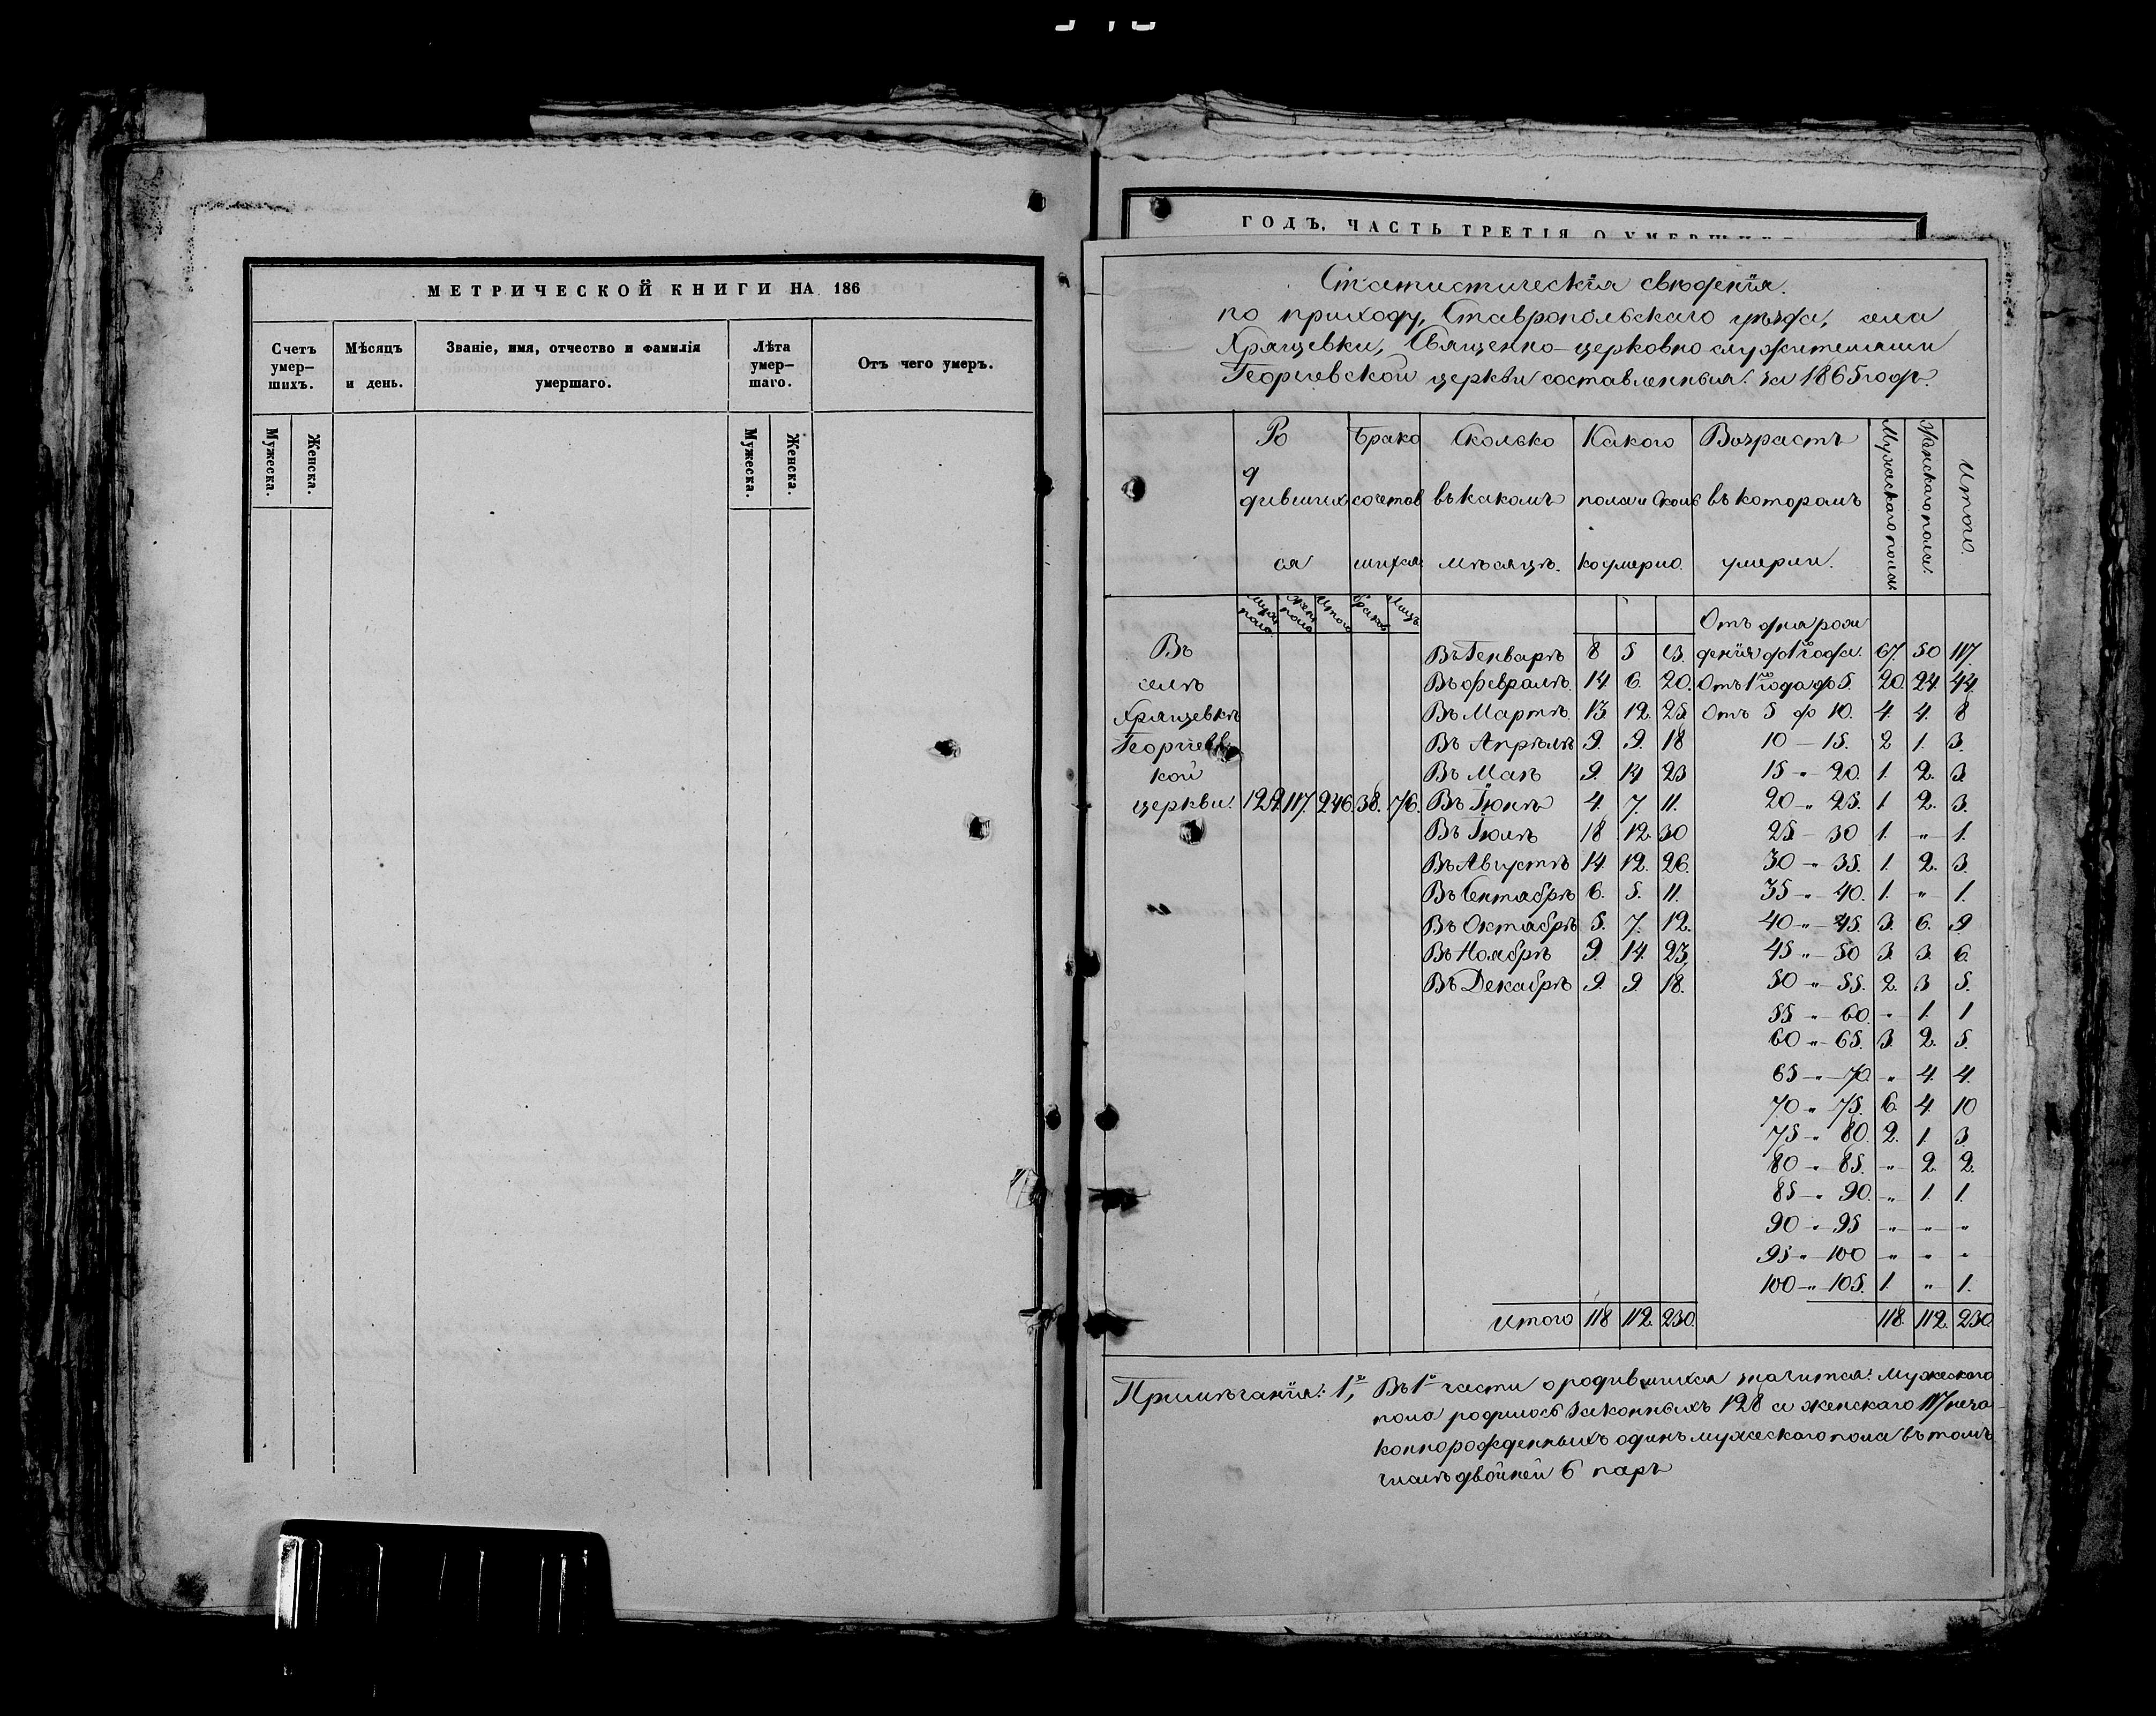 МЕТРИЧЕСКОЙ КНИГИ НА 186
Счетъ умер-шихъ.
Мѣсяцъ и день.
Званіе, имя, отчество и фамилія умершаго.
Лѣта умер-шаго.
Отъ чего умеръ.
Мужеска. Женска.
Мужеска. Женска.
ГОДЪ, ЧАСТЬ ТРЕТІЯ О
Статистическія свѣденія.
по приходу, Ставропольскаго уѣзда, села
Хрящевки, Священно-церковно-служителями
Георгіевской церкви составленныя. за 1865 годъ.
Родившихся
Бракосочетавшихся
Сколько въ какомъ мѣсяцѣ.
Какого пола и сколько умерло.
Возрастъ въ которомъ умерли.
Мужескаго пола.
Женскаго пола.
Итого.
Муж. пола Жен. пола Итого Браков Лицъ
Въ
селѣ
Хрящевкѣ
Георгіевс
кой
церкви. 129. 117. 246. 38. 76.
Въ Генварѣ 8 5 13.
Въ Февралѣ. 14. 6. 20.
Въ Мартѣ. 13. 12. 25.
Въ Апрѣлѣ 9. 9. 18
Въ Маѣ 9. 14 23
Въ Іюнѣ 4. 7. 11.
Въ Іюлѣ 18 12. 30
Въ Августѣ 14. 12. 26.
Въ Сентябрѣ 6. 5. 11.
Въ Октябрѣ 5. 7. 12.
Въ Ноябрѣ 9. 14. 23.
Въ Декабрѣ 9. 9. 18.
Итого 118 112. 230.
Отъ дня рож
денія до 1го года. 67. 50 117.
Отъ 1го года до 5. 20. 24. 44.
Отъ 5 до 10. 4. 4. 8
10 — 15. 2 1. 3.
15 -„- 20. 1. 2. 3.
20 -„- 25. 1 2. 3.
25 — 30 1. „ 1.
30 -„- 35. 1. 2. 3.
35 -„- 40. 1. „ 1.
40 -„- 45. 3. 6. 9
45 -„- 50 3. 3. 6.
50 -„- 55. 2. 3 5.
55 -„- 60. „ 1. 1
60 -„- 65. 3. 2. 5.
65 -„- 70. „ 4. 4.
70 -„- 75. 6. 4. 10
75 -„- 80. 2. 1. 3.
80 -„- 85. „ 2. 2.
85 -„- 90. „ 1. 1.
90 -„- 95 „ „ „
95 -„- 100 „ „ „
100 -„- 105. 1. „ 1.
118. 112. 230.
Примѣчанія: 1е, Въ 1й части о родившихся значится: Мужескаго
пола родилось законныхъ 128 а женскаго 117 неза
коннорожденныхъ одинъ мужескаго пола въ томъ
числѣ двойней 6 паръ